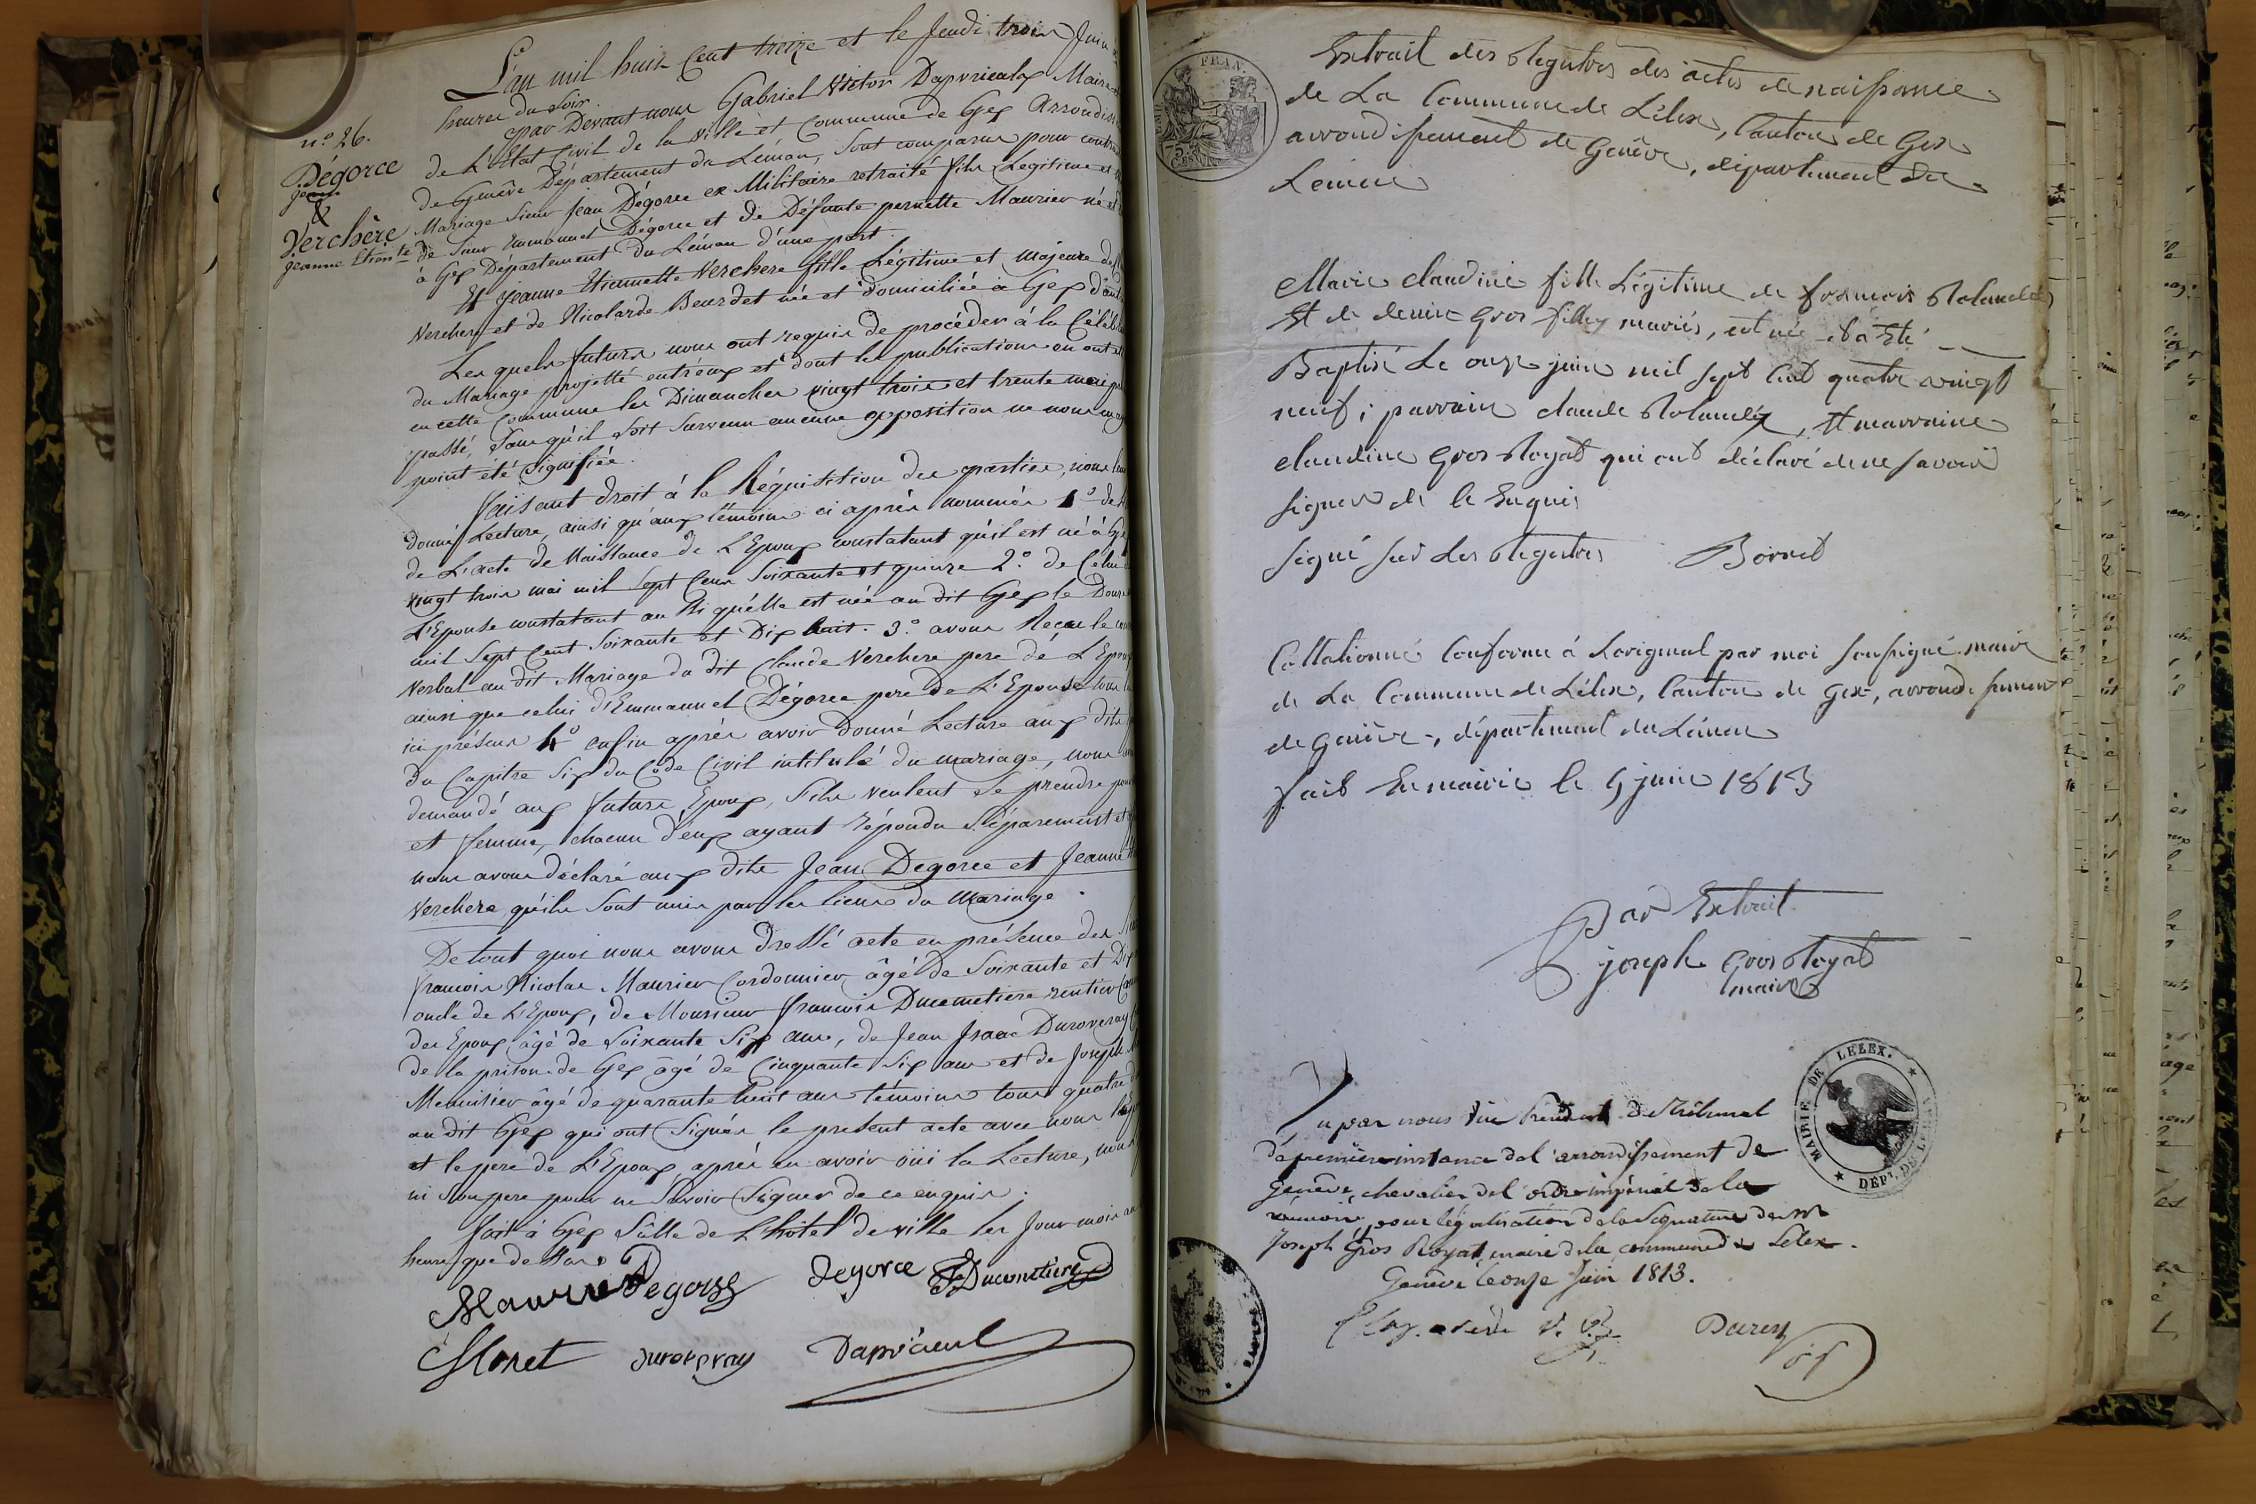 n.o 26.
Dégorce
Jean
&
Verchère
Jeanne Etien.te
L'an mil huit Cent treize et le Jeudi trois Juin
heures du Soir.
par Devant nous Gabriel Victor Maire
de L'Etat Civil de la ville et Commune de Gex Arrondiss
de Genêve Département du Léman, Sont comparus pour contra
Mariage Sieur Jean Dégorce ex Militaire retraité fils Légitime et
de Sieur Emmanuel Dégorce et de Défunte pernette Maurier né et
à Gex Département du Léman d'une part.
Et Jeanne Etiennette Verchere fille Légitime et majeure de
Verchere et de Nicolarde Beurdet née et domiciliée à Gex d'autre
Les quels futurs nous ont requis de procéder à la Céléb
du Mariage projetté entr'eux et dont les publications en ont
en cette Commune les Dimanches vingt trois et trente mai
passé, Sans qu'il soit Survenu aucune opposition ne nous
point été Signifiée.
faisant droit à la Réquisition des parties, nous
donné Lecture, ainsi qu'aux témoins ci après nommés 1o de
de L'acte de Naissance de L'Epoux constatant qu'il est né à Gex
vingt trois mai mil Sept Cent Soixante et quinze 2.o de Celui
L'Epouse constatant au Si qu'elle est née au dit Gex le Douze
mil Sept Cent Soixante et Dix huit. 3.o avons Recu le
Verbal au dit Mariage du dit Claude Verchere pere de L'Epouse
ainsi que celui d'Emmanuel Dégorce pere de L'Epouse tous
ici présens 4o enfin après avoir donné Lecture aux dits
du Capitre Six du Code Civil intitulé du mariage, nous
demandé aux futurs Epoux, S'ils veulent Se prendre pour
et femme, chacun d'eux ayant répondu Séparement et
nous avons déclaré aux dits Jean Degorce et Jeanne
Verchere qu'ils Sont unis par les liens du Mariage.
De tout quoi nous avons dressé acte en présence des
francois Nicolas Maurier Cordonnier âgé de Soixante et Dix
oncle de L'Epoux, de Monsieur francois Ducimetiere rentier
des Epoux âgé de Soixante Six ans, de Jean Isaac Duroveray
de la prison de Gex âgé de Cinquante Six ans et de Joseph
Menuisier âgé de quarante huit ans témoins tous quatre
au dit Gex qui ont Signés le present acte avec nous
et le pere de L'Epoux après en avoir oüi la Lecture, non
ni Son pere pour ne Savoir Signer de ce enquis.
fait à Gex Sâlle de L'hôtel de ville les Jour mois an
heure que devant
Maurier Degorce degorce Ducimetiere
Moret duroveray
Extrait des Registres des actes de naissance
de La Commune de Lélex, Canton de Gex
arrondissement de Genêve, département du
Léman
Marie claudine fille Légitime de francois Rolandez
Et de denise Gros filley mariés, est née et a Eté
Baptisé Le onze juin mil sept Cent quatre vingt
neuf; parrain claude Rolandez, Et marraine
claudine Gros Royat qui ont déclaré de ne savoir
signer de ce Enquis
signé sur Les Registres Bornet
Collationné Conforme à Loriginal par moi soussigné maire
de La Commune de Lélex, Canton de Gex, arrondissement
de Genève, département du Léman
fait En mairie le 9 juin 1813
Par Extrait
joseph Gros Royat
maire
MAIRIE DE LELEX.
DEPT. DU LEMAN
Vu par nous Vice President du Tribunal
de première instance de l'arrondissement de
Genêve, chevalier de l'ordre impérial de la
réunion, pour légalisation de la Signature de Mr
Joseph Gros Royat, maire de la commune de Lelex.
Genêve le onze Juin 1813.